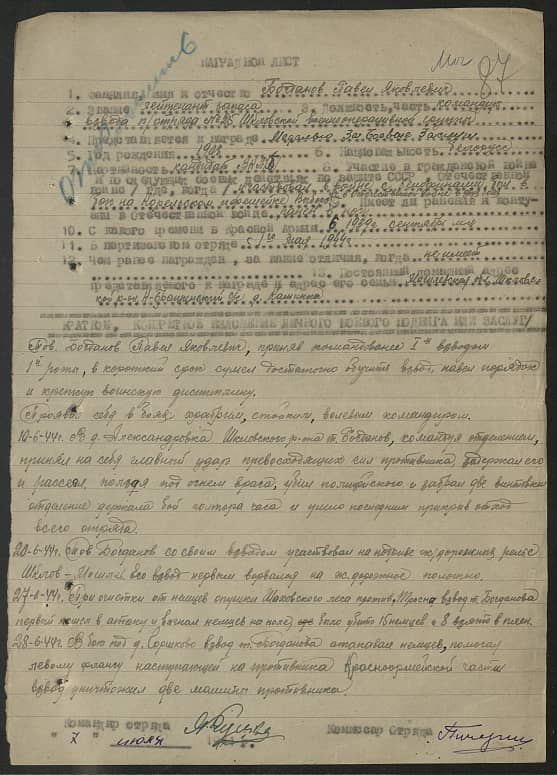 НАГРАДНОЙ ЛИСТ
87
1. Фамилия, имя и отчество Богданов Павел Яковлевич
2. Звание лейтенант запаса 3. Должность, часть командир
взвода п/отряда №25 Шкловской военнооперативной группы
4. Представляется к награде Медалью За Боевые Заслуги
5. Год рождения 6. Национальность белорус
партийность кандидат 8. Участие в гражданской войне
и последующих боевых действиях по защите СССР
войне / где, когда / участвовал в войне с
на Карельском перешейке 9. Имеет ли ранения и контузии
в Отечественной войне
10. С какого времени в Красной Армии с 1939г. сентября м-ца
11. В партизанском отряде с 1 мая 1944г.
12. Чем ранее награжден, за какие отличия, когда не имеет
13. Постоянный домашний адрес
представляемого к награде и адрес его семьи
д.
КРАТКОЕ, КОНКРЕТНОЕ ИЗЛОЖЕНИЕ ЛИЧНОГО БОЕВОГО ПОДВИГА ИЛИ ЗАСЛУГ/
Тов. Богданов Павел Яковлевич, приняв командование 1м взводом
1й роты, в короткий срок сумел достаточно обучить взвод, навел порядок
и крепкую воинскую дисциплину.
Проявил себя в боях храбрым, стойким, волевым командиром.
10-6-44г. В д. Александровка Шкловского р-на т. Богданов, командуя отделением,
принял на себя главный удар превосходящих сил противника, задержал его
и рассеял, ползая под огнем врага, убил полицейского и забрал две винтовки
отделение держала бой полтора часа и умело последним прикрыв отход
всего отряда.
20-6-44г. Тов Богданов со своим взводом участвовал на подрыве ж/дорожных рельс
Шклов - Его взвод первым ворвался на ж. дорожное полотно.
27-6-44г. При очистки от немцев опушки леса против. взвод т. Богданова
первый пошел в атаку и выгнал немцев на поле, где было убито 15 немцев и 8 взято в плен.
28-6-44г. В бою под д. Горшково взвод т. Богданова атаковал немцев, помогая
левому флангу наступающей на противника Красноармейской части
взвод уничтожил две машины противника.
Командир отряда Комиссар Отряда
" 7 " июля